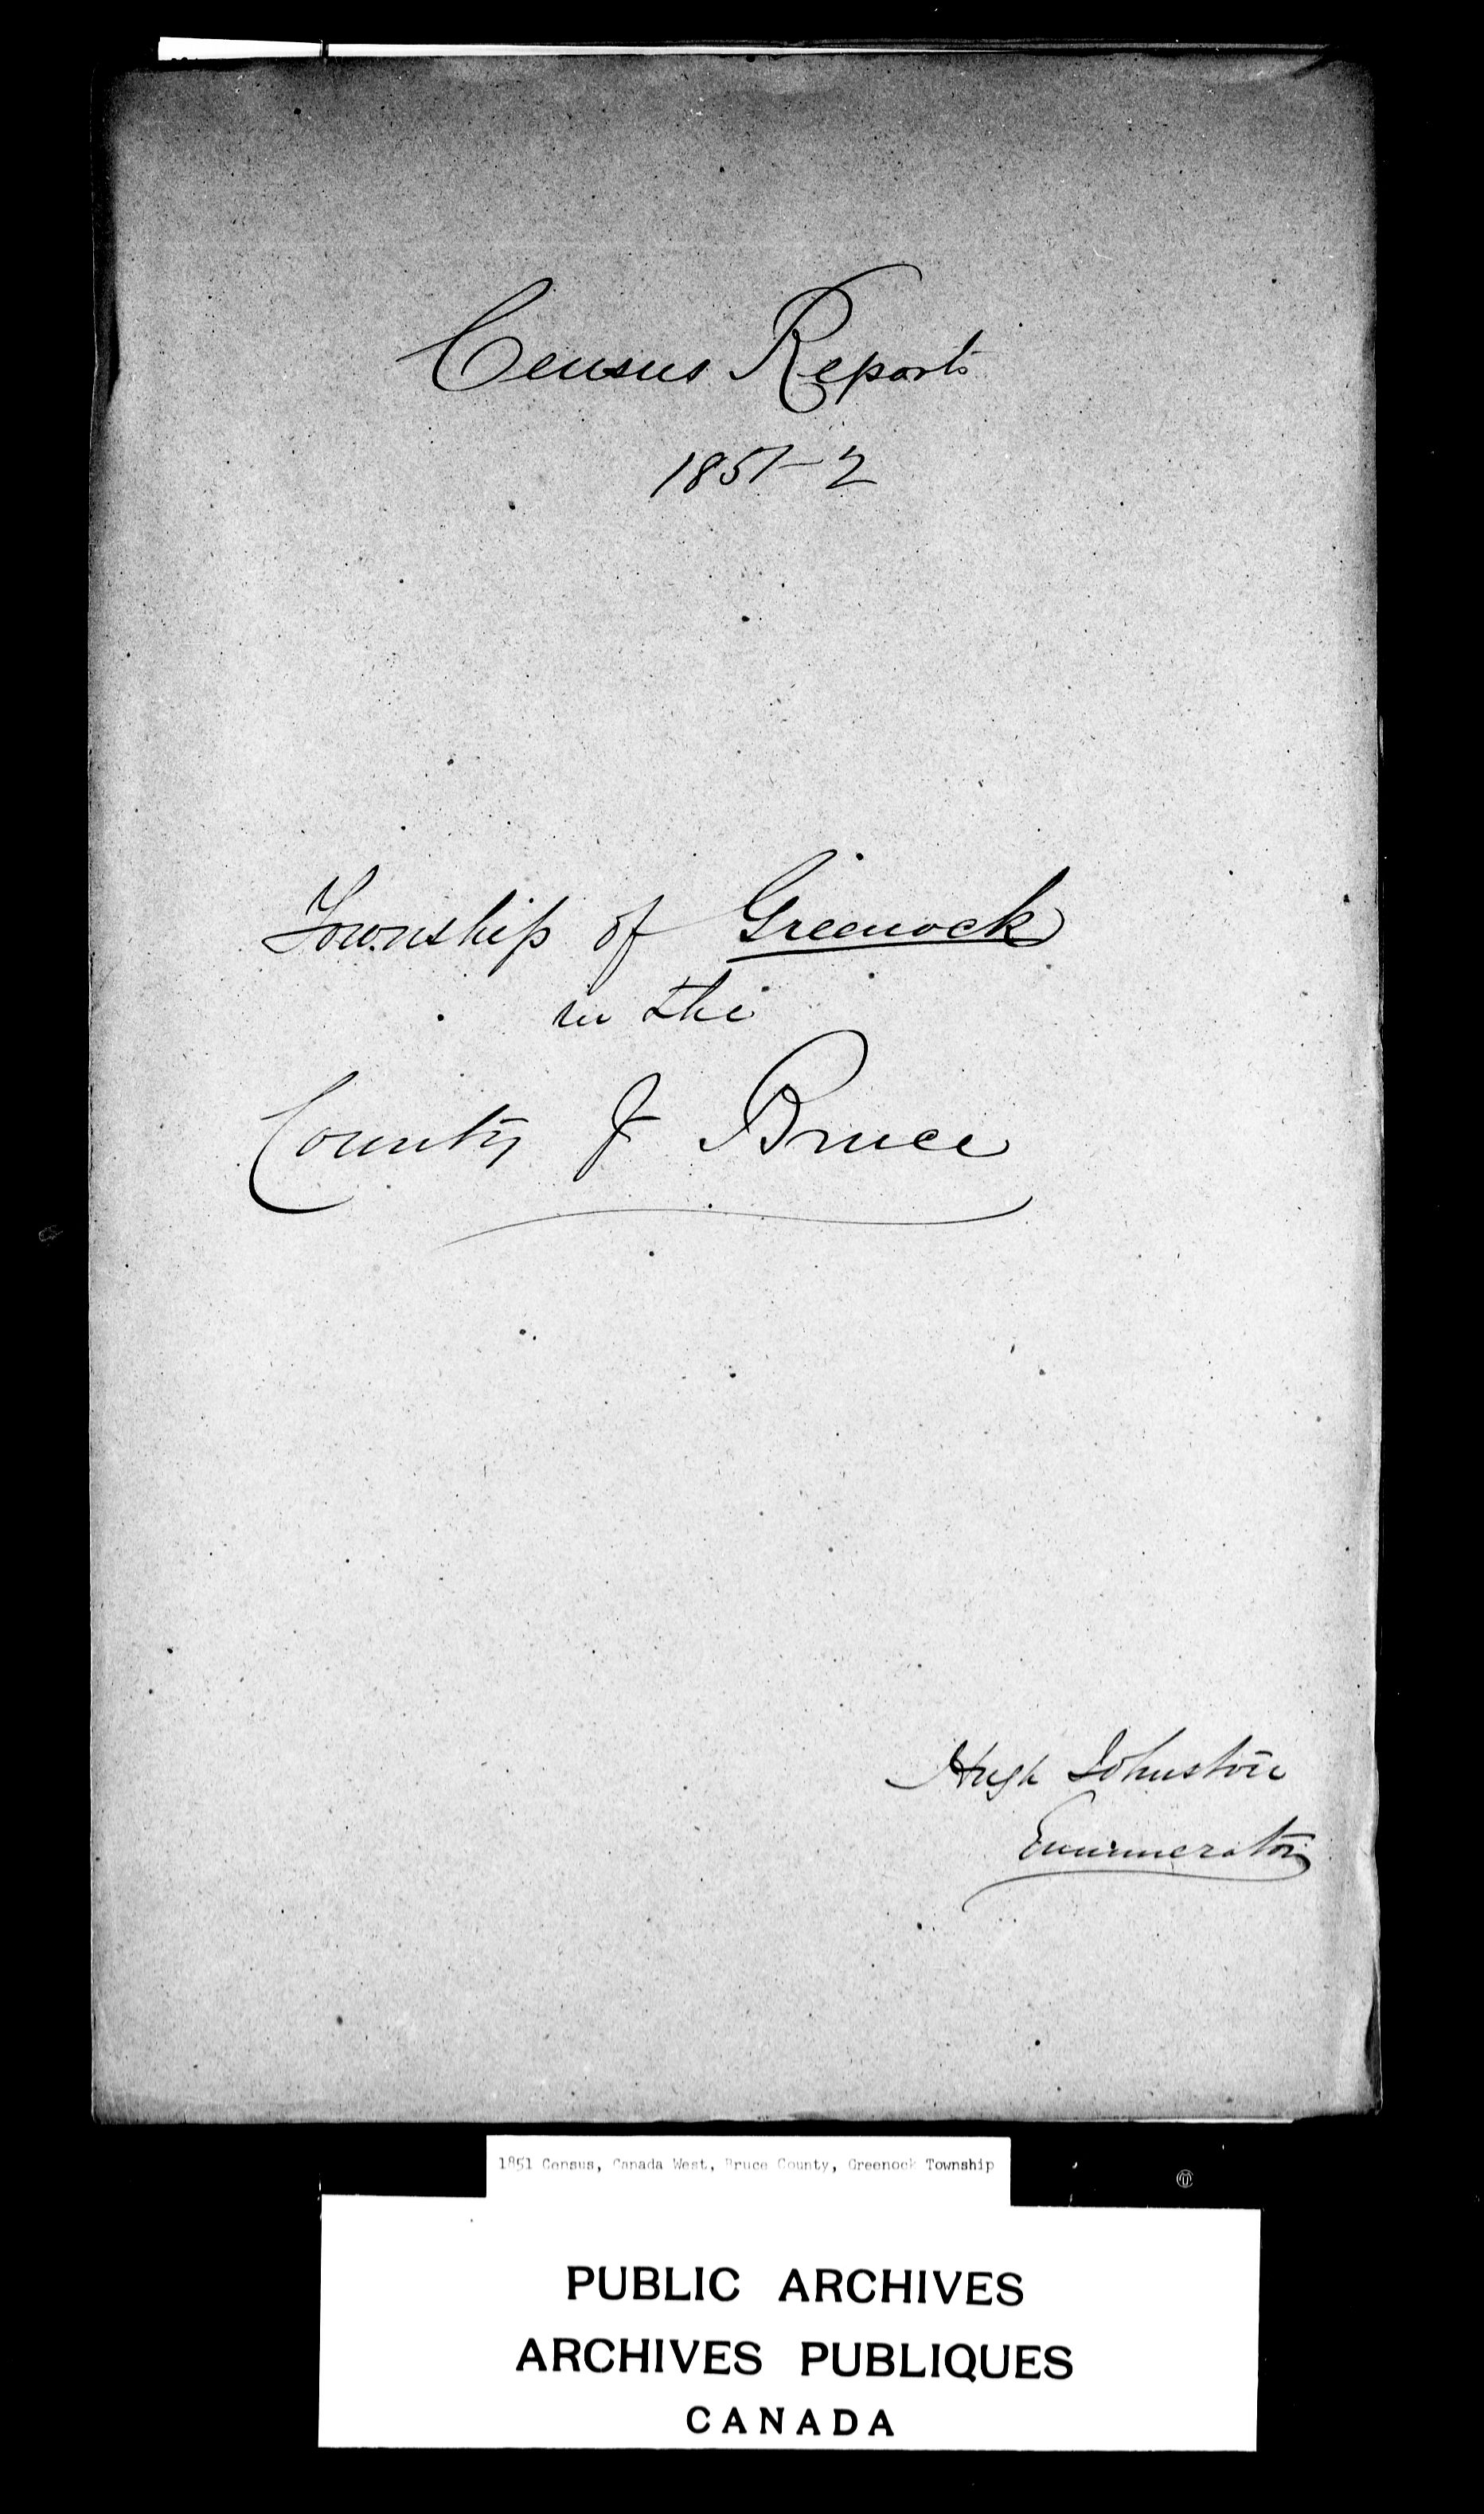 Census Reports
1851-2
Township of Greenock
in the
County of Bruce
Hugh Johnston
Enumerator
1851 Census, Canada West, Bruce County, Greenock Township
PUBLIC ARCHIVES
ARCHIVES PUBLIQUES
CANADA